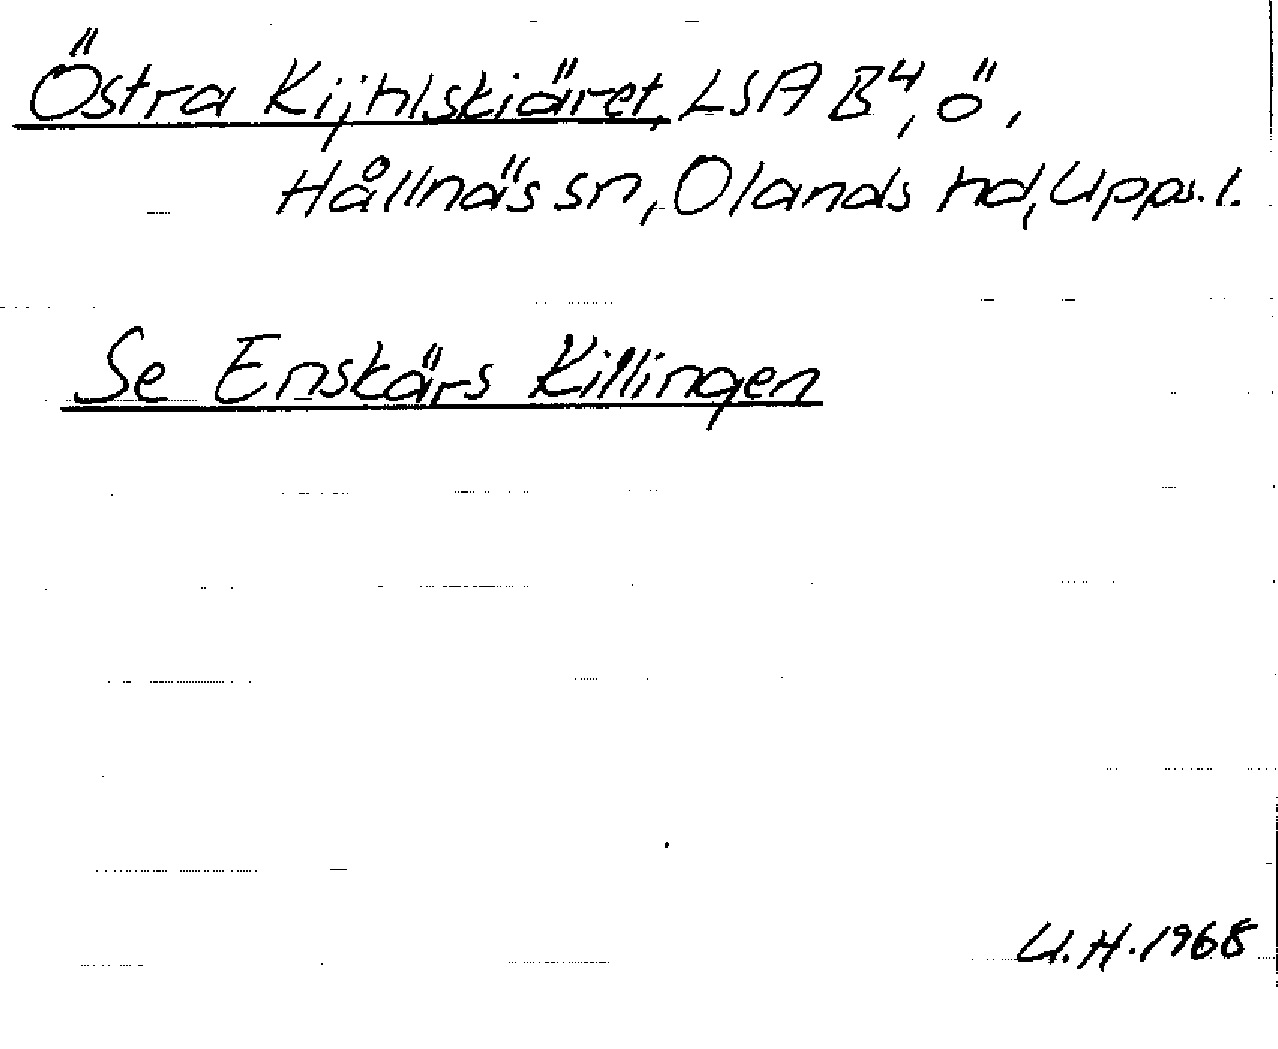 Östra Kijhlskiäret, LSA B4, ö,
Hållnäs sn, Olands hd, Upps. l.
Se Enskärs Killingen
U.H. 1968